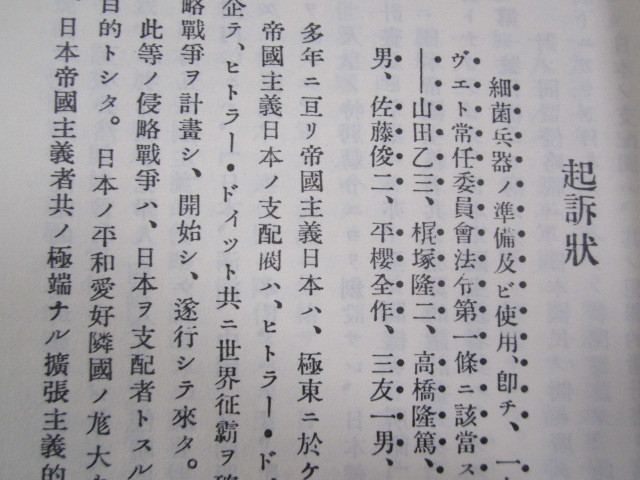 起訴狀
細菌兵器ノ準備及ビ使用、卽チ、一
ヴエト常任委員會法令第一條ニ該當ス
――山田乙三、梶塚隆二、高橋隆篤、
男、佐藤俊二、平櫻全作、三友一男、
多年ニ亘リ帝國主義日本ハ、極東ニ於ケ
帝國主義日本ノ支配閥ハ、ヒトラー・ド
企テ、ヒトラー・ドイツト共ニ世界征覇ヲ
略戰爭ヲ計畫シ、開始シ、遂行シテ來タ。
此等ノ侵略戰爭ハ、日本ヲ支配者トスル
目的トシタ。日本ノ平和愛好隣國ノ尨大ナ
日本帝國主義者共ノ極端ナル擴張主義的